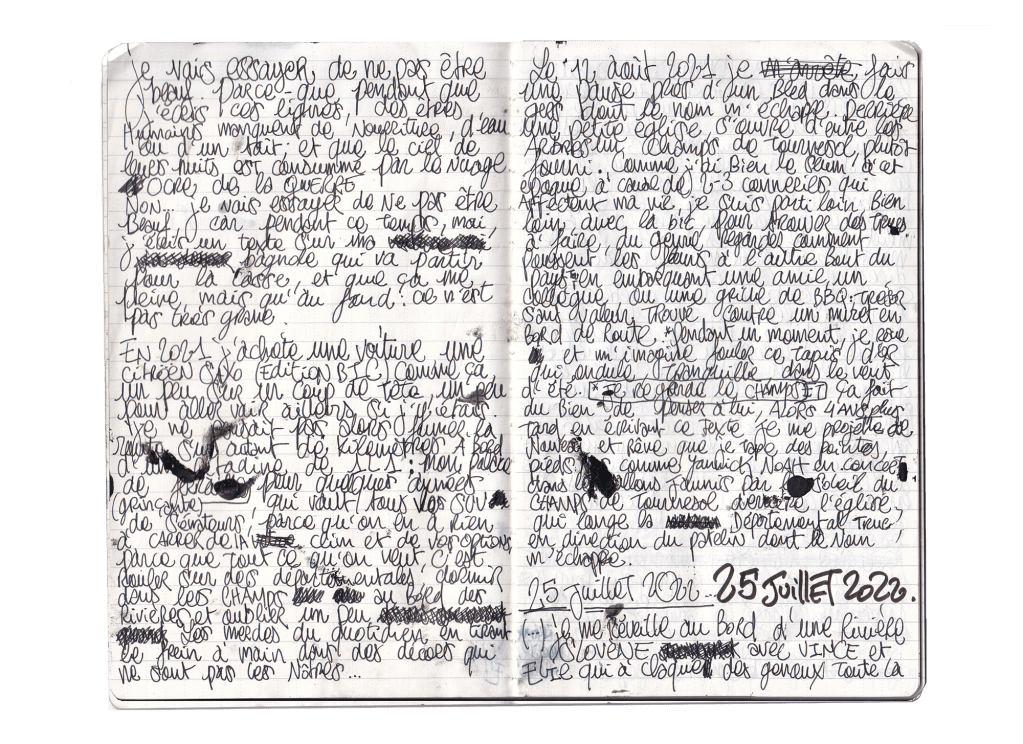 Je vais essayer de ne pas être
beauf. Parce-que pendant que
j'écris ces lignes, des êtres
Humains manquent de Nourriture, d'eau
ou d'un toit; et que le ciel de
leurs nuits est consummé par le nuage
OCRE de la GUERRE
Bon.. je vais essayer de ne pas être
beauf, car pendant ce temps, moi,
j'écris un texte sur ma
bagnole qui va partir
pour la casse. et que ça me
peine, mais qu'au fond: ce n'est
pas très grave.
EN 2021 j'achète une voiture, une
CITROËN SAXO (Edition BIC) comme ça
un peu sur un coup de tête, un peu
pour aller voir ailleurs si j'y étais.
Je ne pas alors
sur autant de kilomètres à bord
de tadine de
de pour quelques années
qui vaut tous vos SUV
de Sénateurs, parce qu'on en a Rien
à CARRER de la clim et de vos options,
parce que tout ce qu'on veut c'est
rouler sur des départementales, dormir
dans les CHAMPS au bord des
Rivières et oublier un peu
les merdes du quotidien en tirant
le frein à main dans des décors qui
ne sont pas les Nôtres...
Le 12 août 2021 je fais
une pause près d'un Bled dans le
gers dont le nom m'échappe. Derrière
une petite église s'ouvre d'entre les
ARBRES un champs de tournesol, plutôt
fourni. Comme j'ai Bien le seum à cet
époque, à cause de 2-3 conneries qui
Affectent ma vie, je suis parti loin, Bien
loin, avec la bic pour trouver des trucs
à faire, du genre, regarder comment
poussent les fleurs à l'autre bout du
pays en embarquant une amie, un
collègue ou une grille de BBQ: trésor
sans valeur, trouvé contre un muret en
bord de Route. *Pendant un moment, je rêve
et m'imagine fouler ce tapis d'or
qui ondule, tranquille dans le vent
d'été. * Je regarde le CHAMPS ET ça fait
du Bien de penser à lui, Alors 4 ANS plus
tard en écrivant ce texte je me projette de
Nouveau et Rêve que je tape des pointes
pieds comme Yannick NOAH en concert
dans les sillons fournis par soleil du
CHAMPS de Tournesol derrière l'église,
qui longe la Départementale
en direction du patelin dont le Nom
m'échappe.
25 juillet 2022. 25 JUILLET 2022.
Je me réveille au Bord d'une Rivière
SLOVÈNE avec VINCE et
qui a claqué des genoux toute la